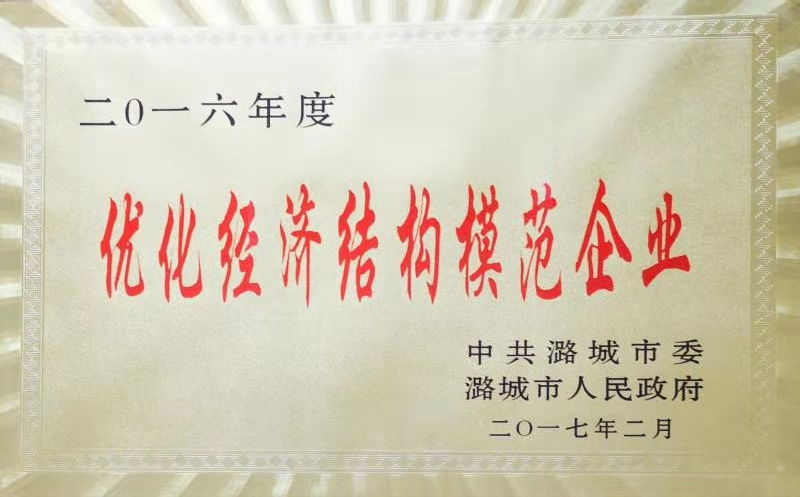 二O一六年度
优化经济结构模范企业
中共潞城市委
潞城市人民政府
二O一七年二月